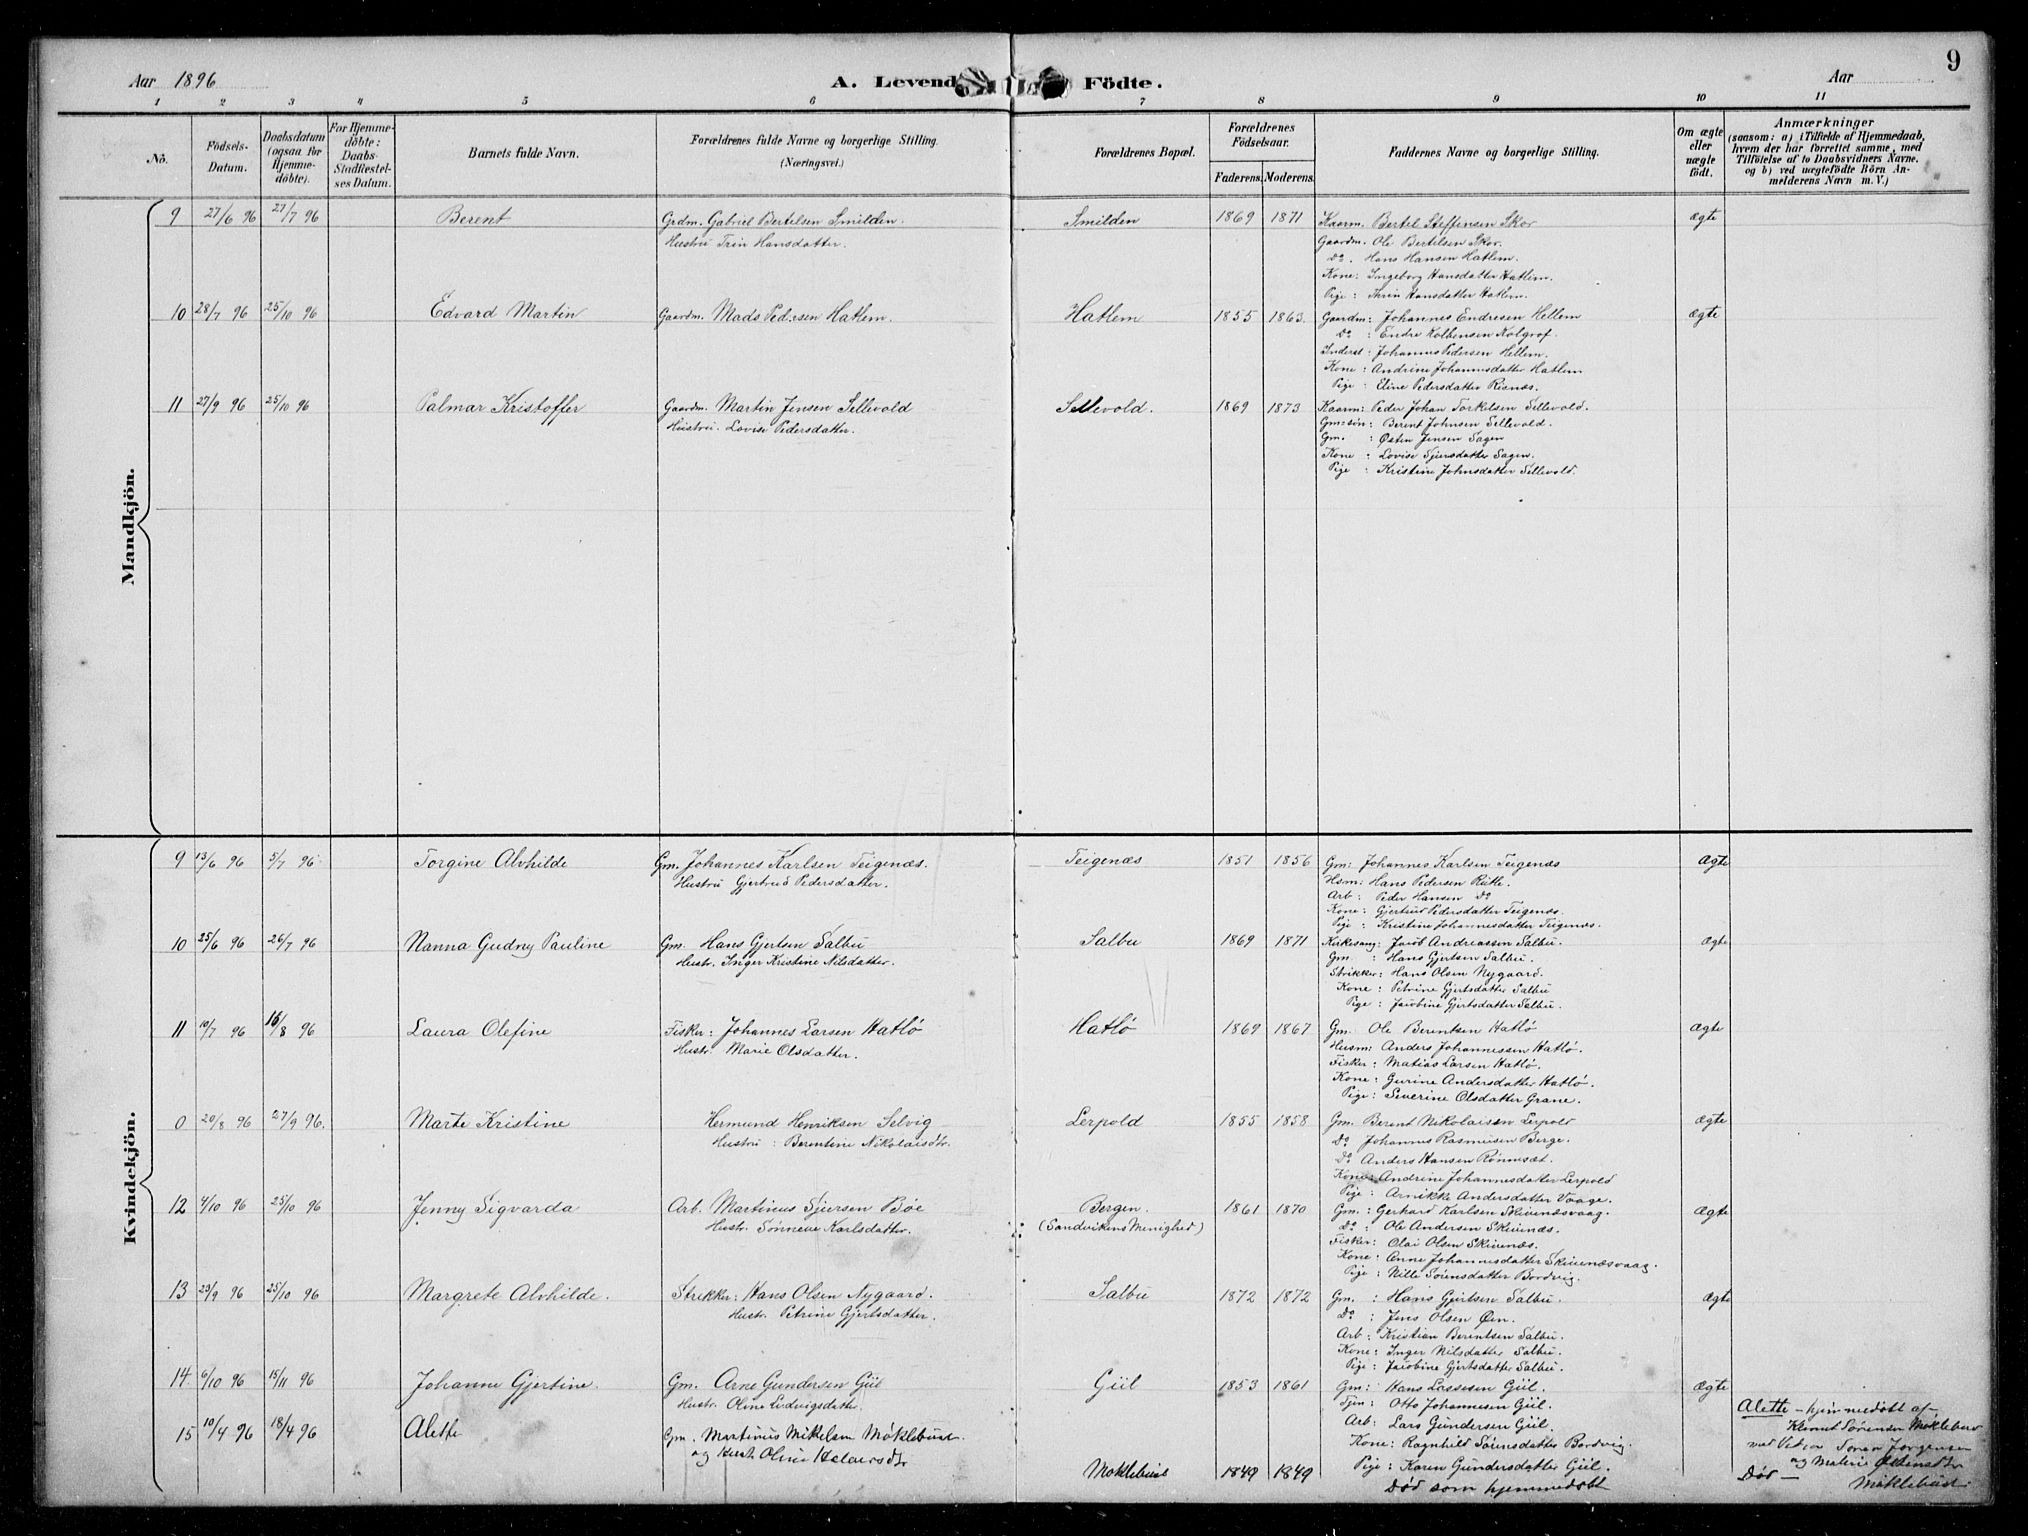 9
Aar 1896
A. Levend Födte.
Aar
1 2 3 4 5 6 7 8 9 10 11
No.
Födsels-Datum.
Daabsdatum (ogsaa for Hjemme-döbte).
For Hjemme-döbte: Daabs-Stadfæstel-ses Datum.
Barnets fulde Navn.
Forældrenes fulde Navne og borgerlige Stilling.
(Næringsvei.)
Forældrenes Bopæl.
Forældrenes Födselsaar.
Faderens. Moderens.
Faddernes Navne og borgerlige Stilling.
Om ægte eller uægte födt.
Anmærkninger
(saasom: a) i Tilfælde af Hjemmedaab, hvem der har forrettet samme, med Tilföielse af to Daabsvidners Navne. og b) ved uægtefödte Börn An-melderens Navn m. V.)
Mandkjön.
9 27/6 96 27/7 96 Berent Grdm. Gabriel Bertelsen Smilden. Smilden 1869 1871 Kaarm. Bertel Steffensen Skor ægte
Hustru Trin Hansdatter. Gaardm. Ole Bertelsen Skor.
Do. Hans Hansen Hatlem.
Kone: Ingeborg Hansdatter Hatlem.
Pige: Thrin Hansdatter Hatlem.
10 28/7 96 25/10 96 Edvard Martin Gaardm. Mads Pedersen Hatlem. Hatlem 1855 1863. Gaardm: Johannes Endresen Hellem ægte
Do: Endre Kolbensen Kolgrof.
Inderst: Johannes Pedersen Hellem.
Kone: Andrine Johannesdatter Hatlem
Pige: Eline Pedersdatter Risnæs.
11 27/9 96 25/10 96 Palmar Kristoffer Gaardm. Martin Jensen Sellevold Sellevold. 1869 1873. Kaarm: Peder Johan Torkelsen Sellevold.
Hustru. Lovise Pedersdatter. Gm.søn: Berent Johnsen Sellevold.
Gm.: Østen Jensen Sagen
Kone: Lovise Sjursdatter Sagen.
Pige: Kristine Johnsdatter Sellevold.
Kvindekjön.
9 13/6 96 5/7 96 Torgine Alvhilde Gm. Johannes Karlsen Teigenæs. Teigenæs 1851 1856 Gm: Johannes Karlsen Teigenæs Ægte
Hustru Gjertrud Pedersdatter. Hsm: Hans Pedersen Rutle.
Arb: Peder Hansen Do
Kone: Gjertrud Pedersdatter Teigenæs.
Pige: Kristine Johannesdatter Teigenæs.
10 25/6 96 26/7 96 Nanna Gudny Pauline Gm. Hans Gjertsen Salbu Salbu 1869 1871 Kirkesang: Jacob Andreassen Salbu. ægte
Hustr. Inger Kristine Nilsdatter. Gm.: Hans Gjertsen Salbu.
Strikker: Hans Olsen Nygaard.
Kone: Petrine Gjertsdatter Salbu
Pige: Jacobine Gjertsdatter Salbu.
11 10/7 96 16/8 96 Laura Olefine Fisker: Johannes Larsen Hatlø Hatlø 1869 1867 Gm. Ole Berentsen Hatlø ægte
Hustr. Marie Olsdatter. Husm: Anders Johannessen Hatlø.
Fisker: Matias Larsen Hatlø.
Kone: Gurine Andersdatter Hatlø.
Pige: Severine Olsdatter Grane.
0 20/8 96 27/9 96. Marte Kristine Hermund Henriksen Selvig Lerpold 1855 1858 Gm. Berent Nikolaisen Lerpold ægte
Hustru: Berentine Nikolaisdtr. Do Johannes Rasmusen Berge.
Do Anders Hansen Rønneset.
Kone: Andrine Johannesdatter Lerpold
Pige: Arnikke Andersdatter Vaage.
12 4/10 96 25/10 96 Jenny Sigvarda Arb. Martinus Sjursen Bøe Bergen 1861 1870 Gm.: Gerhard Karlsen Skivenæsvaag. ægte
Hustr. Sørneve Karlsdatter. (Sandvikens Menighed) Do: Ole Andersen Skivenæs.
Fisker: Olai Olsen Skivenæs.
Kone: Anne Johannesdatter Skivenæsvaag.
Pige: Nille Sørensdatter Bordvig.
13 23/9 96 25/10 96 Margrete Alvhilde. Strikker: Hans Olsen Nygaard. Salbu 1872 1872 Gm.: Hans Gjertsen Salbu. ægte
Hustr. Petrine Gjertsdatter. Do: Jens Olsen Øen.
Arb: Kristian Berentsen Salbu.
Kone: Inger Nilsdatter Salbu.
Pige: Jacobine Gjertsdatter Salbu.
14 6/10 96 15/11 96 Johanne Gjertine. Gm. Arne Gundersen Giil Giil 1853 1861 Gm: Hans Lassesen Giil. ægte
Hustr. Oline Ludvigsdatter Tjen: Otto Johannesen Giil.
Arb: Lars Gundersen Giil.
Kone: Ragnhild Sørensdatter Bordvig.
Pige: Karen Gundersdatter Giil.
15 10/4 96 18/4 96 Alette Gm. Martinus Mikelsen Møklebust Møklebust 1849 1849 Død som hjemmedøbt
og Hust. Oline
Alette – hjemmedøbt af
Klemet Sørensen Møklebust
med Vidner Søren Jørgensen
og Malene
Død – Møklebust